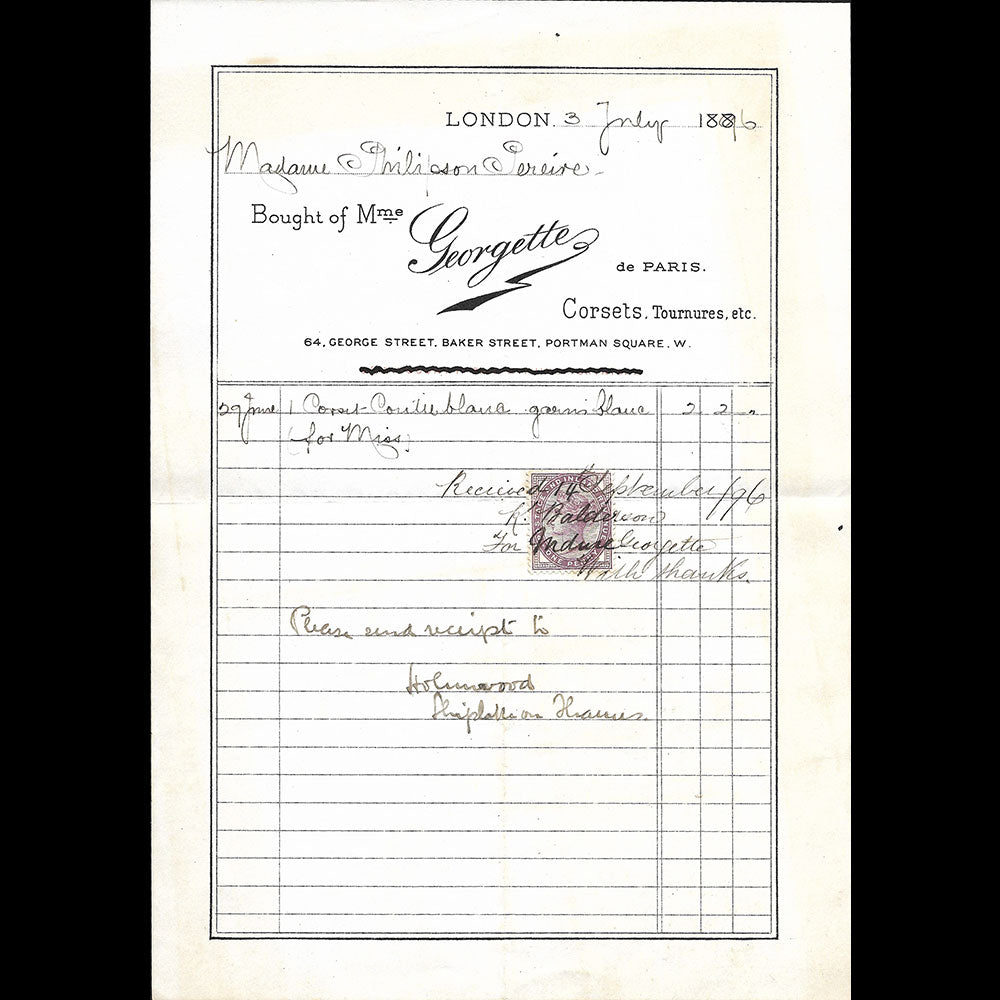 LONDON. 3 July 1896
Madame Philipson Pereire
Bought of Mme Georgette
de PARIS.
Corsets, Tournures, etc.
64, GEORGE STREET, BAKER STREET, PORTMAN SQUARE, W.
29 June 1 Corset Coutil blanc garni blanc 2 2 -
(for Miss)
Received 14 September /96
R. Balderson
For Mdme Georgette
With thanks.
Please send receipt to
Holmwood
Shiplake on Thames